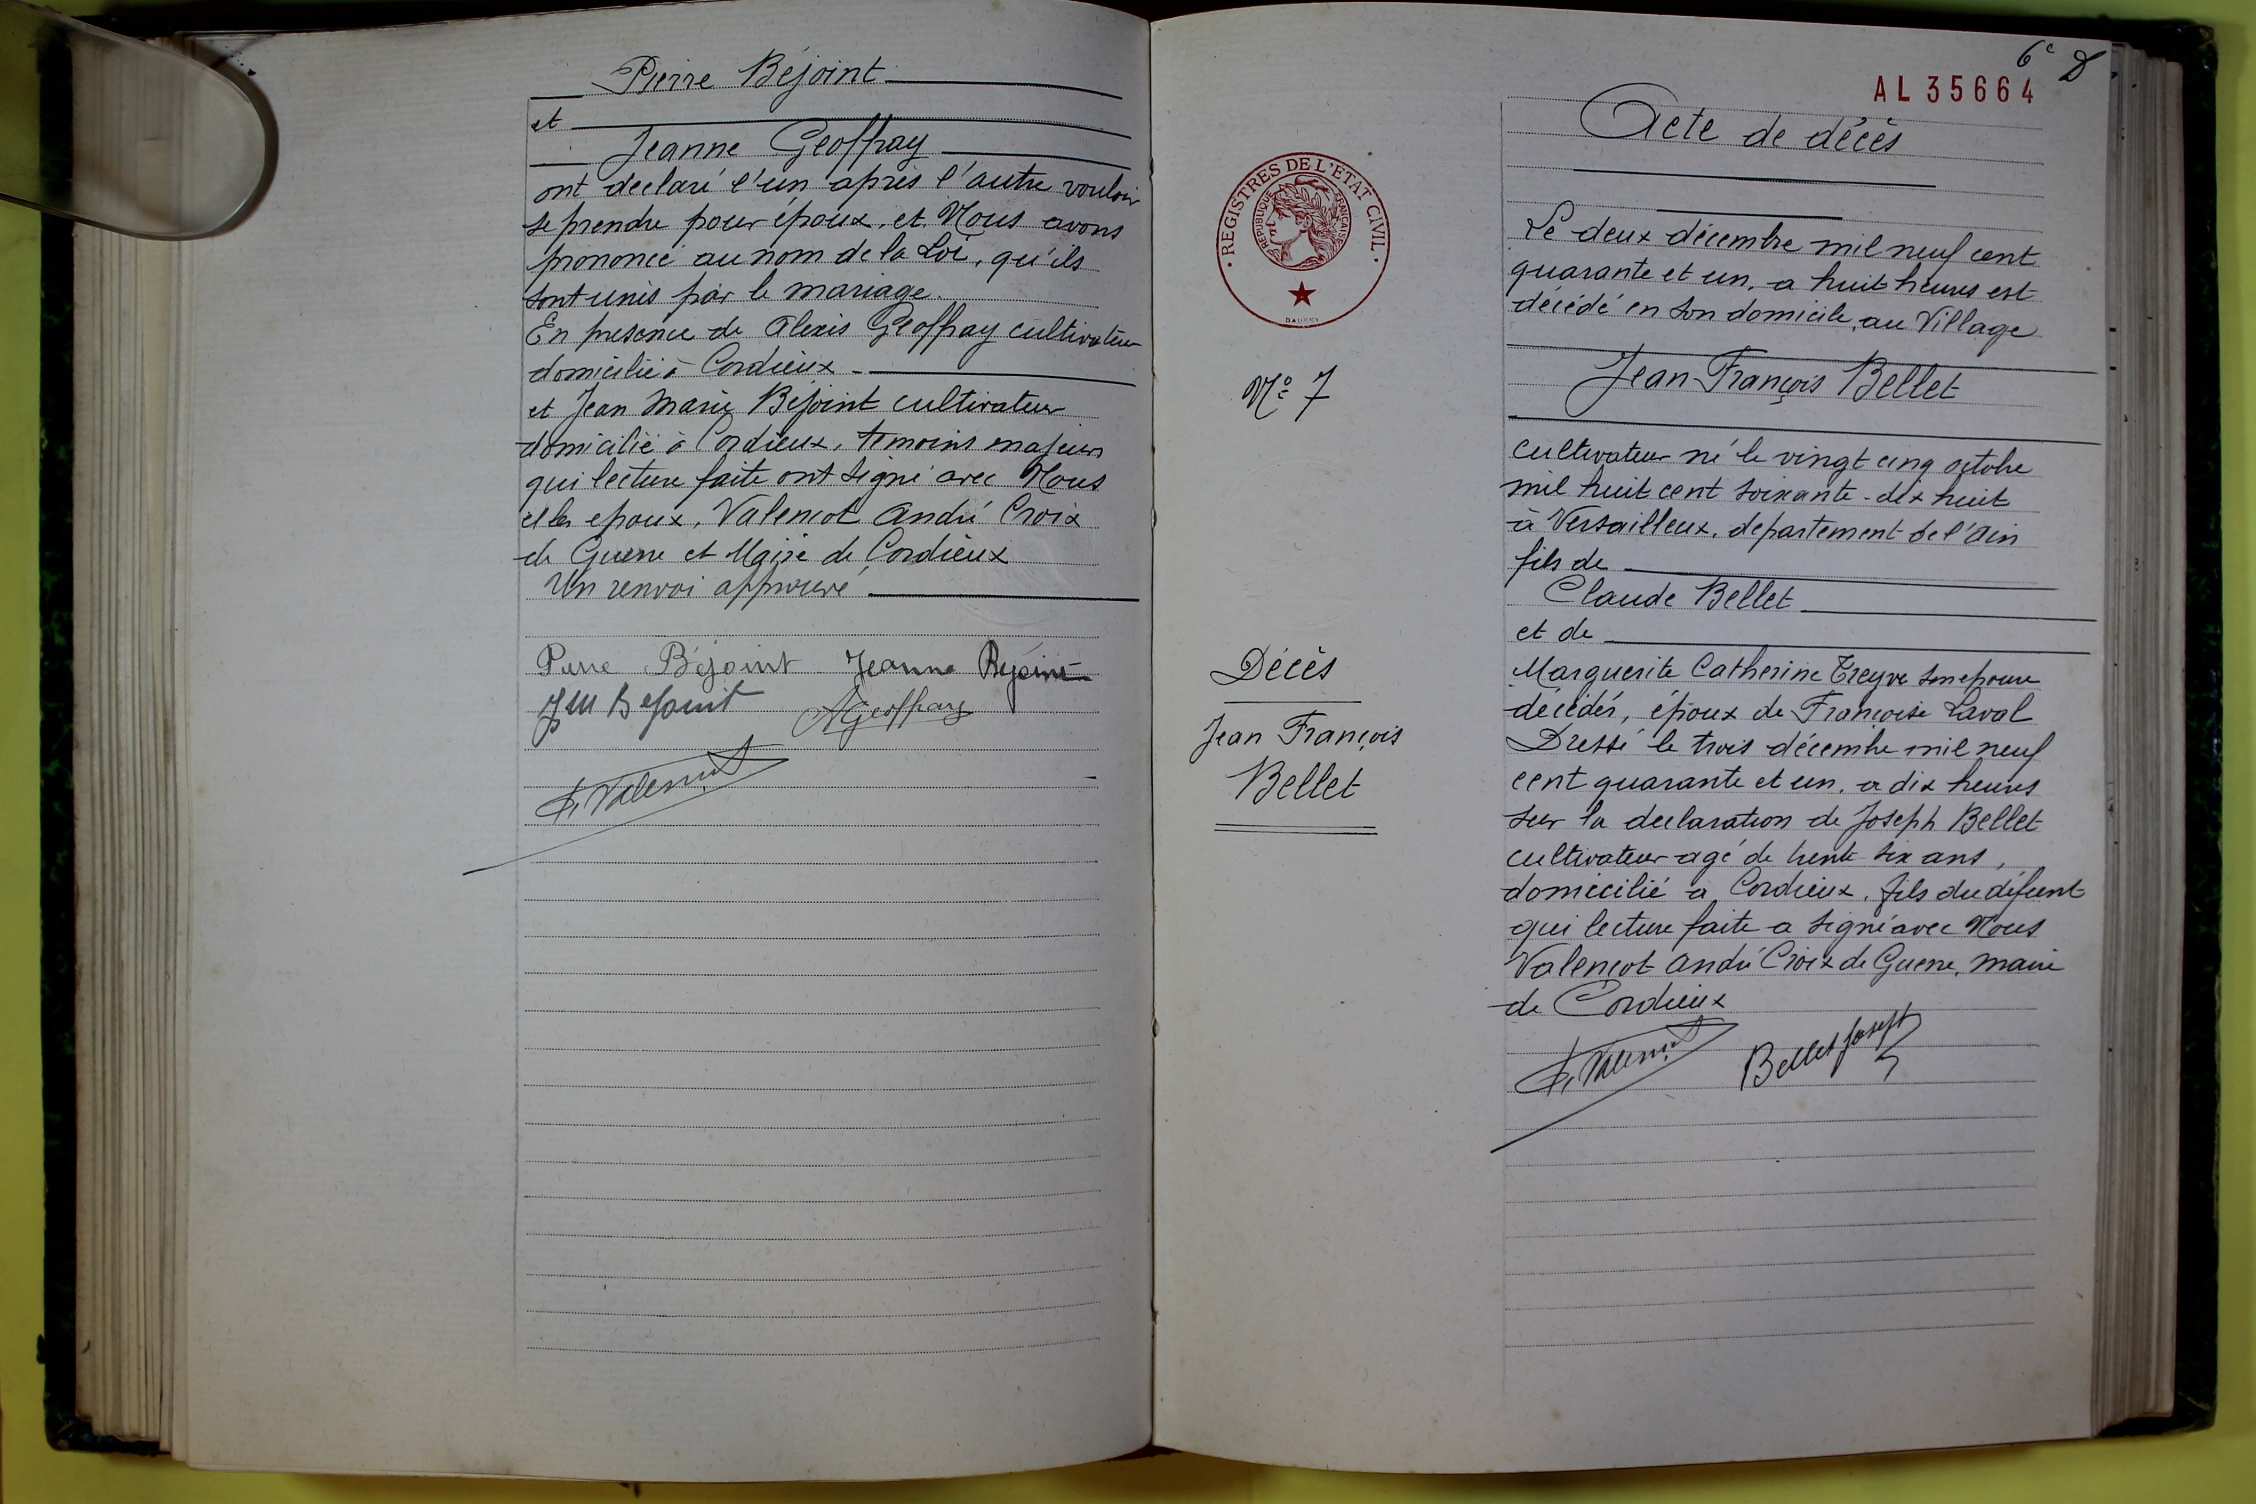 Pierre Béjoint
et
Jeanne Geoffray
ont declaré l'un après l'autre vouloir
se prendre pour époux, et Nous avons
prononcé au nom de la Loi, qu'ils
sont unis par le mariage.
En presence de Alexis Geoffray cultivateur
domicilié à Cordieux -
et Jean Marie Béjoint cultivateur
domicilié à Cordieux, temoins majeurs
qui lecture faite ont signé avec Nous
et les epoux, Valencot André Croix
de Guerre et Maire de Cordieux
Un renvoi approuvé
Pierre Béjoint Jeanne Béjoint
JM Béjoint AGeoffray
A. Valencot
6e D
AL 35664
REGISTRES DE L'ETAT CIVIL
REPUBLIQUE FRANÇAISE
No 7
Décès
Jean François
Bellet
Acte de décès
Le deux décembre mil neuf cent
quarante et un, a huit heures est
décédé en son domicile, au Village
Jean François Bellet
cultivateur né le vingt cinq octobre
mil huit cent soixante-dix huit
à Versailleux, departement de l'Ain
fils de
Claude Bellet
et de
Marguerite Catherine Treyve son epouse
décédés, époux de Francoise Laval
Dressé le trois décembre mil neuf
cent quarante et un, a dix heures
sur la declaration de Joseph Bellet
cultivateur agé de trente six ans,
domicilié a Cordieux, fils du défunt
qui lecture faite a signé avec Nous
Valencot André Croix de Guerre, maire
de Cordieux
A. Valencot Bellet Joseph